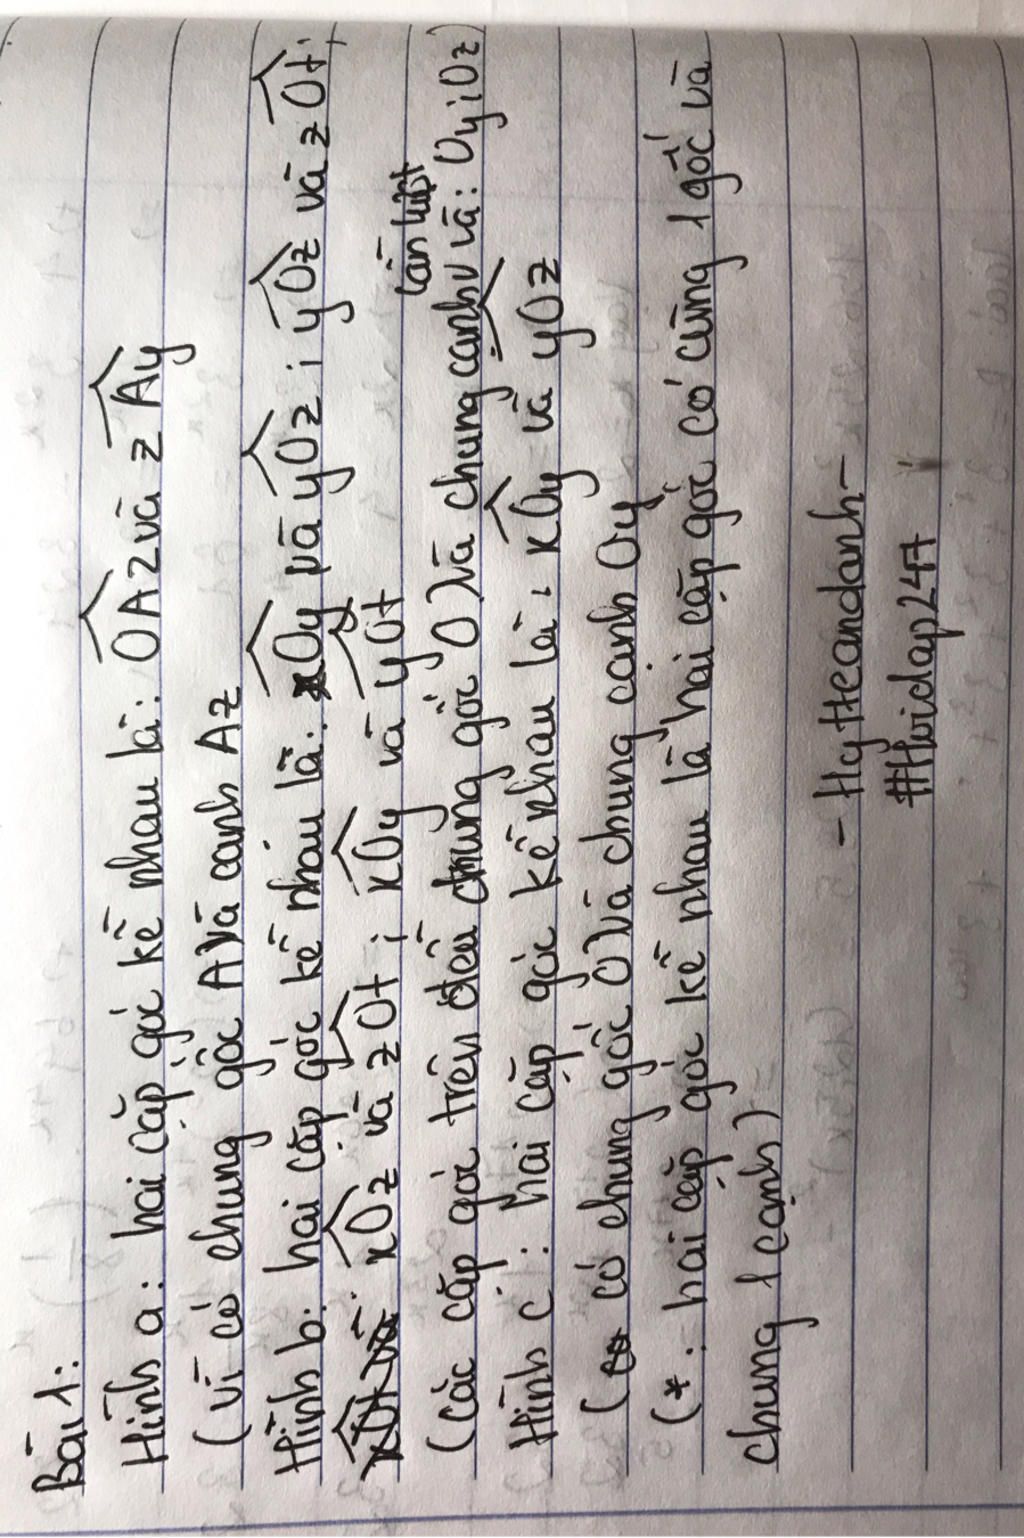 Bài 1:
Hình a: hai cặp góc kề nhau là: OAz và zAy
(vì có chung gốc A và cạnh Az
Hình b: hai cặp góc kề nhau là: xOy và yOz ; yOz và zOt ;
xOz và zOt ; xOy và yOt
(Các cặp góc trên đều chung gốc O và chung cạnh lần lượt và: Oy; Oz)
Hình c: hai cặp góc kề nhau là: xOy và yOz
( có chung gốc O và chung cạnh Oy
(*: hai cặp góc kề nhau là hai cặp góc có cùng 1 gốc và
chung 1 cạnh)
-HgTteandanh-
#Hoidap247